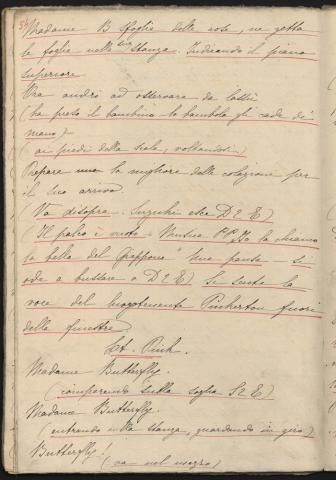 Madame B sfoglia delle rose, ne getta
le foglie nella sua stanza. Indicando il piano
superiore
Ora andrò ad osservare da lassù
(ha preso il bambino - la bambola gli cade di
mano)
(ai piedi della scala, voltandosi)
Prepara una la migliore delle colazioni per
il suo arrivo
(Va disopra. Suzuki esce D 2 E)
Il palco è vuoto. Musica PP. Ko la chiamo
la bella del Giappone. Una pausa - si
ode a bussare a D 2 E) Si sente la
voce del luogotenente Pinkerton fuori
della finestra)
Lt. Pink.
Madame Butterfly.
(comparendo sulla soglia S 2 E)
Madame Butterfly.
(entrando nella stanza, guardando in giro)
Butterfly!
(va nel mezzo)